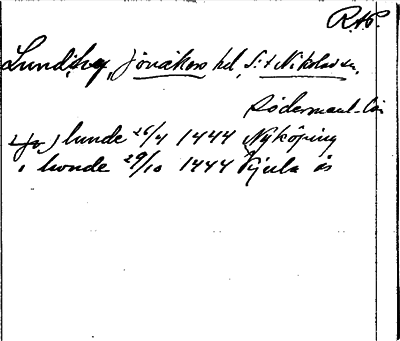 R.A.P.
Lundby, Jonåkers hd, S:t Nikolai sn,
Södermanl. län
lunde 26/4 1444 Nyköping
lwnde 29/10 1444 Kjula ås